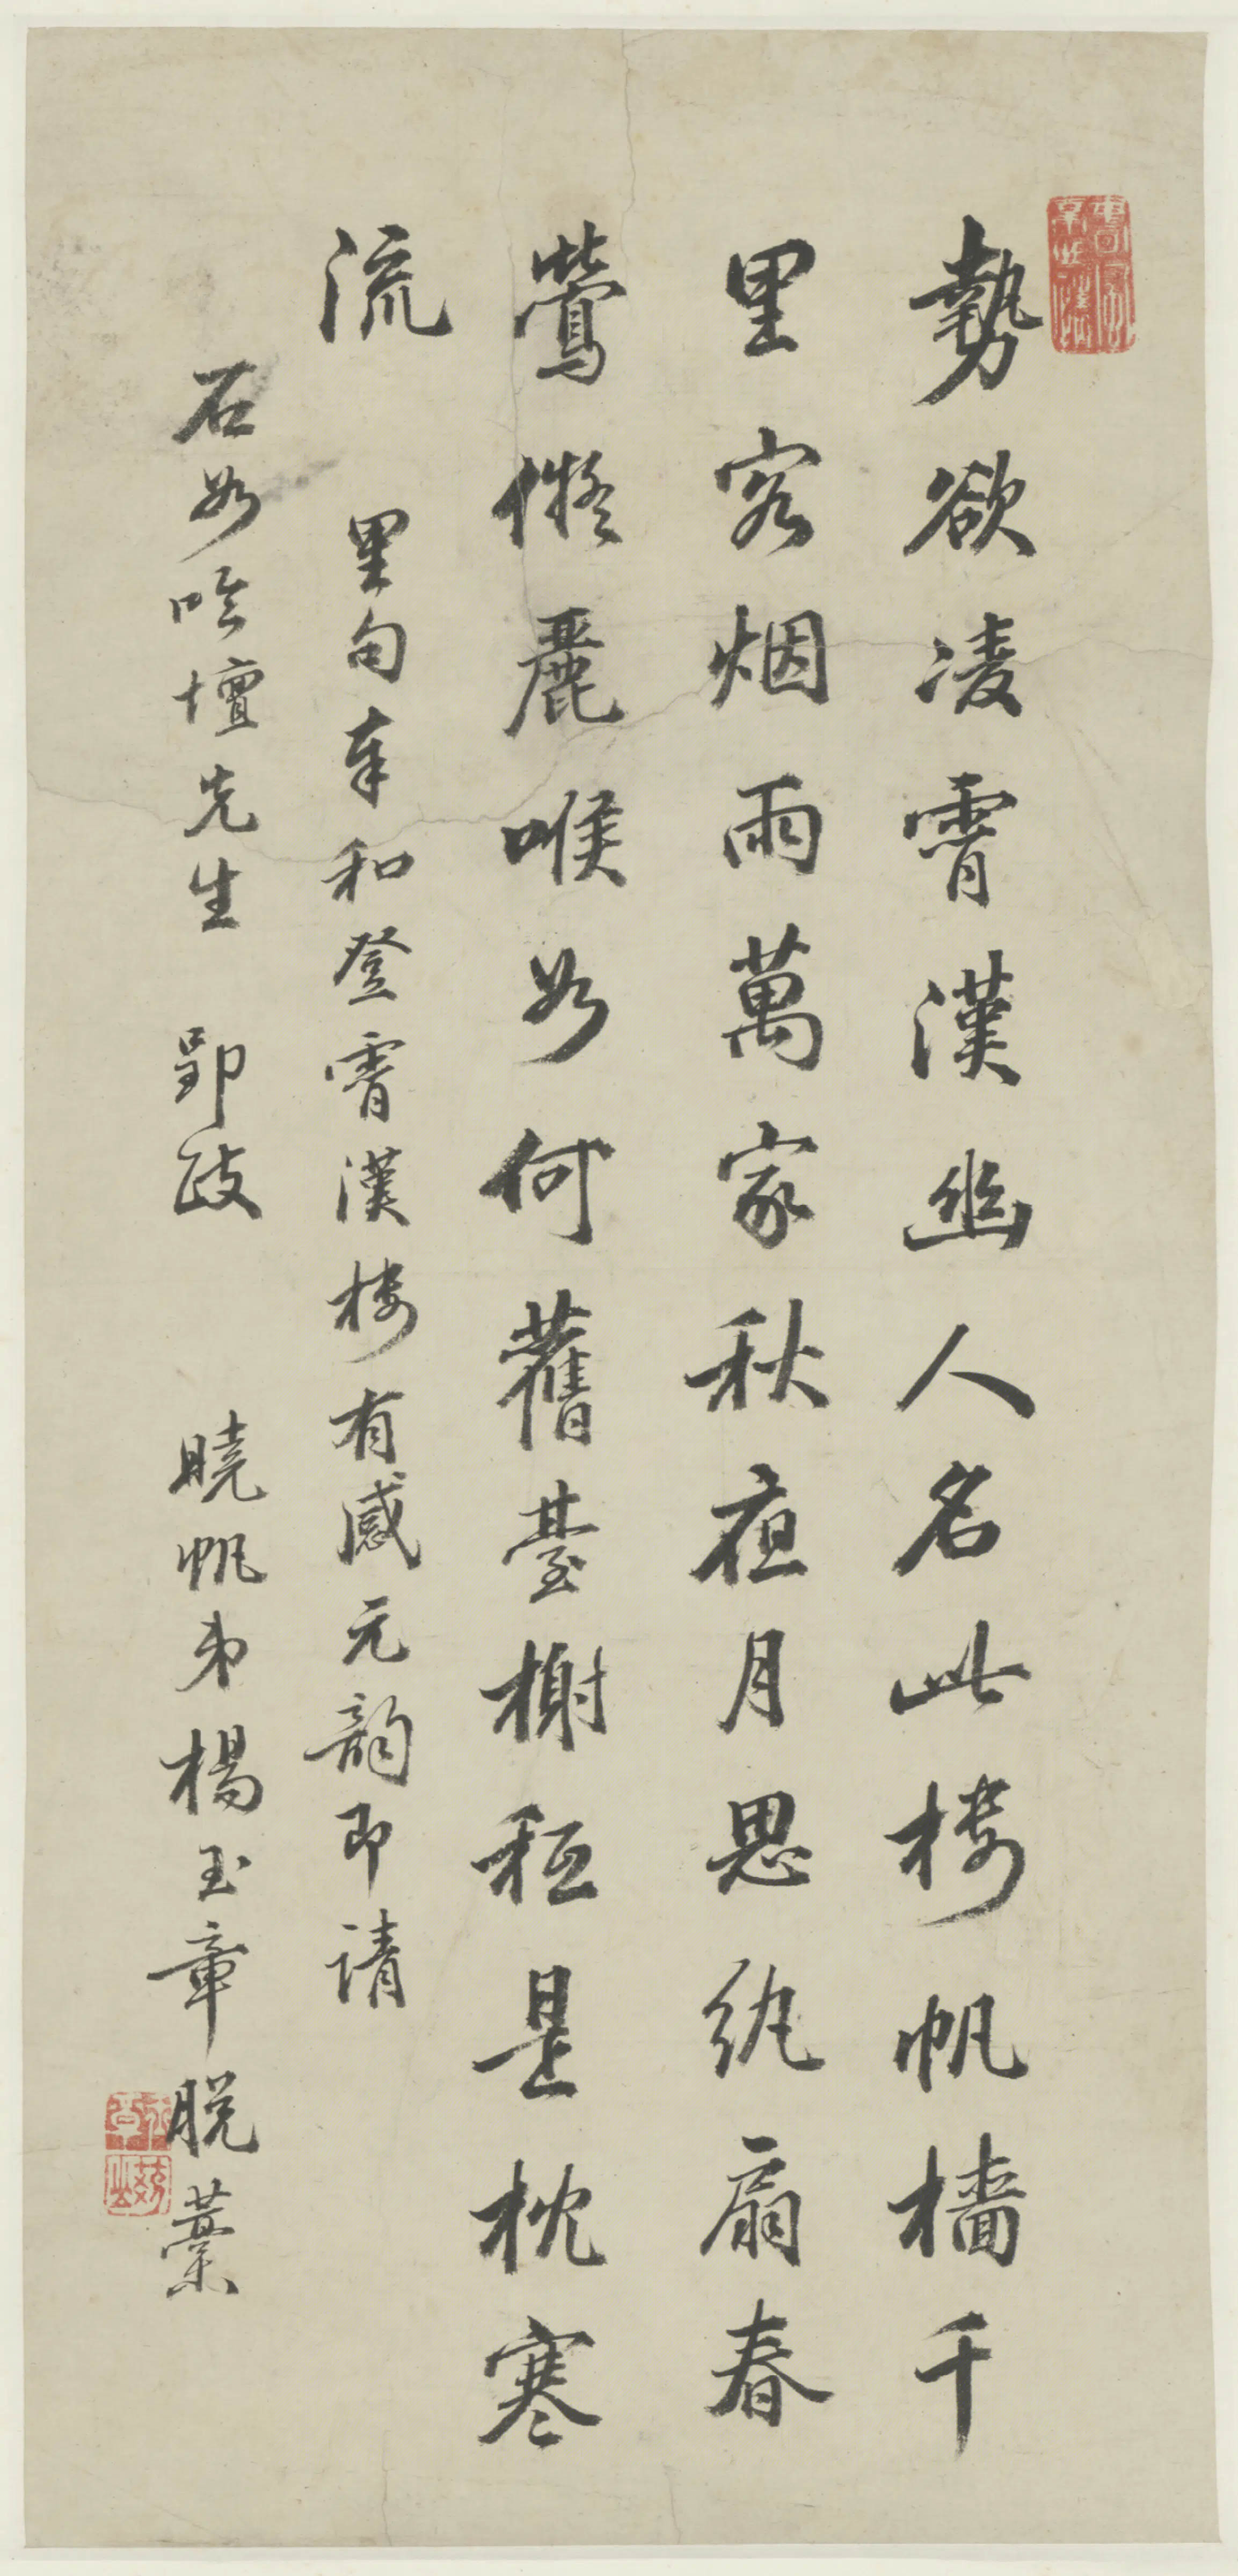 勢欲凌霄漢幽人名此楼帆檣千
里客烟雨萬家秋夜月思紈扇春
鶯儗麗喉如何舊臺榭秪是枕寒
流
里句奉和登霄漢楼有感元韵即请
石如吟壇先生郢政
曉帆弟楊玉章脱藁